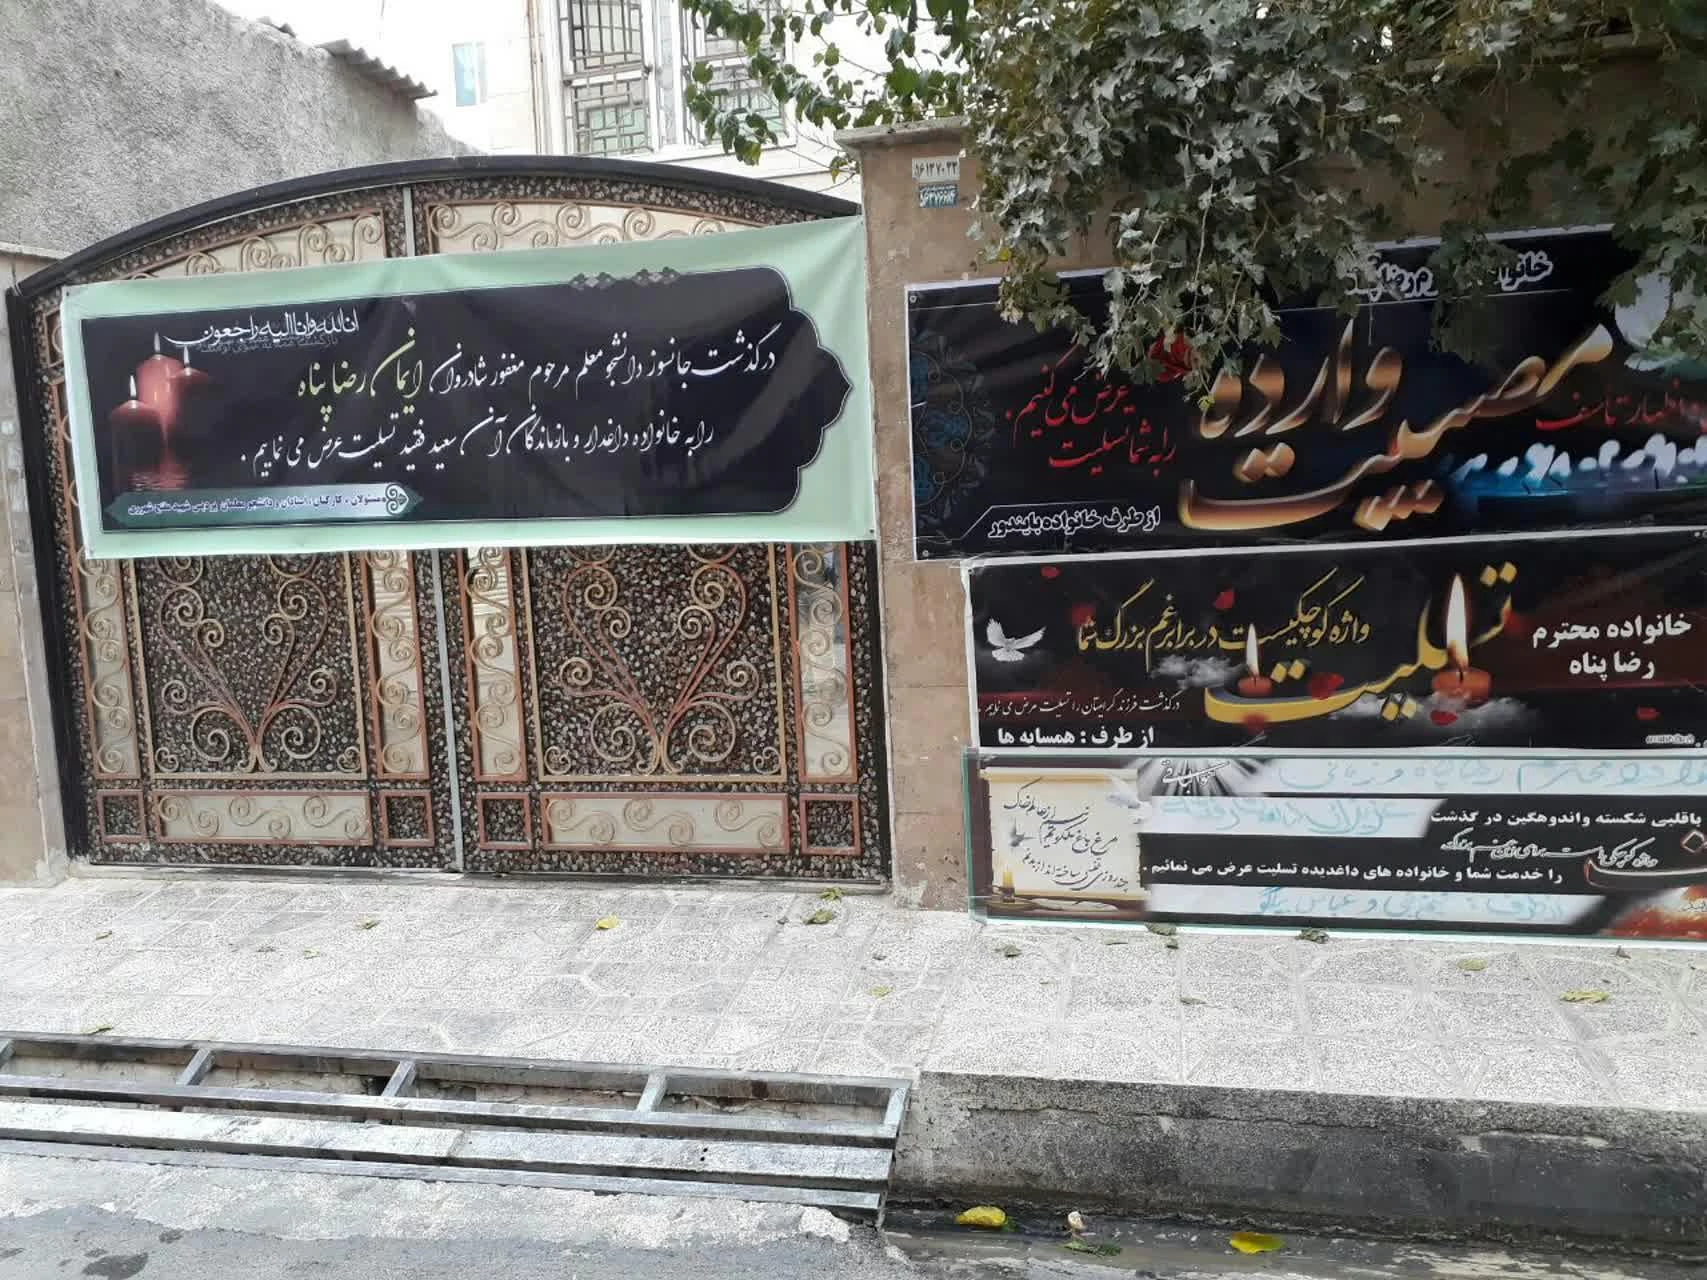 انالله و انا الیه راجعون
درگذشت جانسوز دانشجو معلم مرحوم مغفور شادروان ایمان رضا پناه
را به خانواده داغدار و بازماندگان آن سعید فقید تسلیت عرض می نماییم .
مسئولان ، کارکنان ، استادان و دانشجو معلمان پردیس شهید مفتح شهرری
۹۶۱۳۷۰۳۳
مصیبت وارده
با اظهار تاسف
را به شما تسلیت
عرض می کنیم .
از طرف خانواده بایندور
خانواده محترم
رضا پناه
تسلیت
واژه کوچکیست در برابر غم بزرگ شما
درگذشت فرزند گرامیتان را تسلیت عرض می نماییم .
از طرف : همسایه ها
باقلبی شکسته واندوهگین در گذشت
را خدمت شما و خانواده های داغدیده تسلیت عرض می نمائیم .
مرغ باغ ملکوتم نیم از عالم خاک
چند روزی قفسی ساخته اند از بدنم